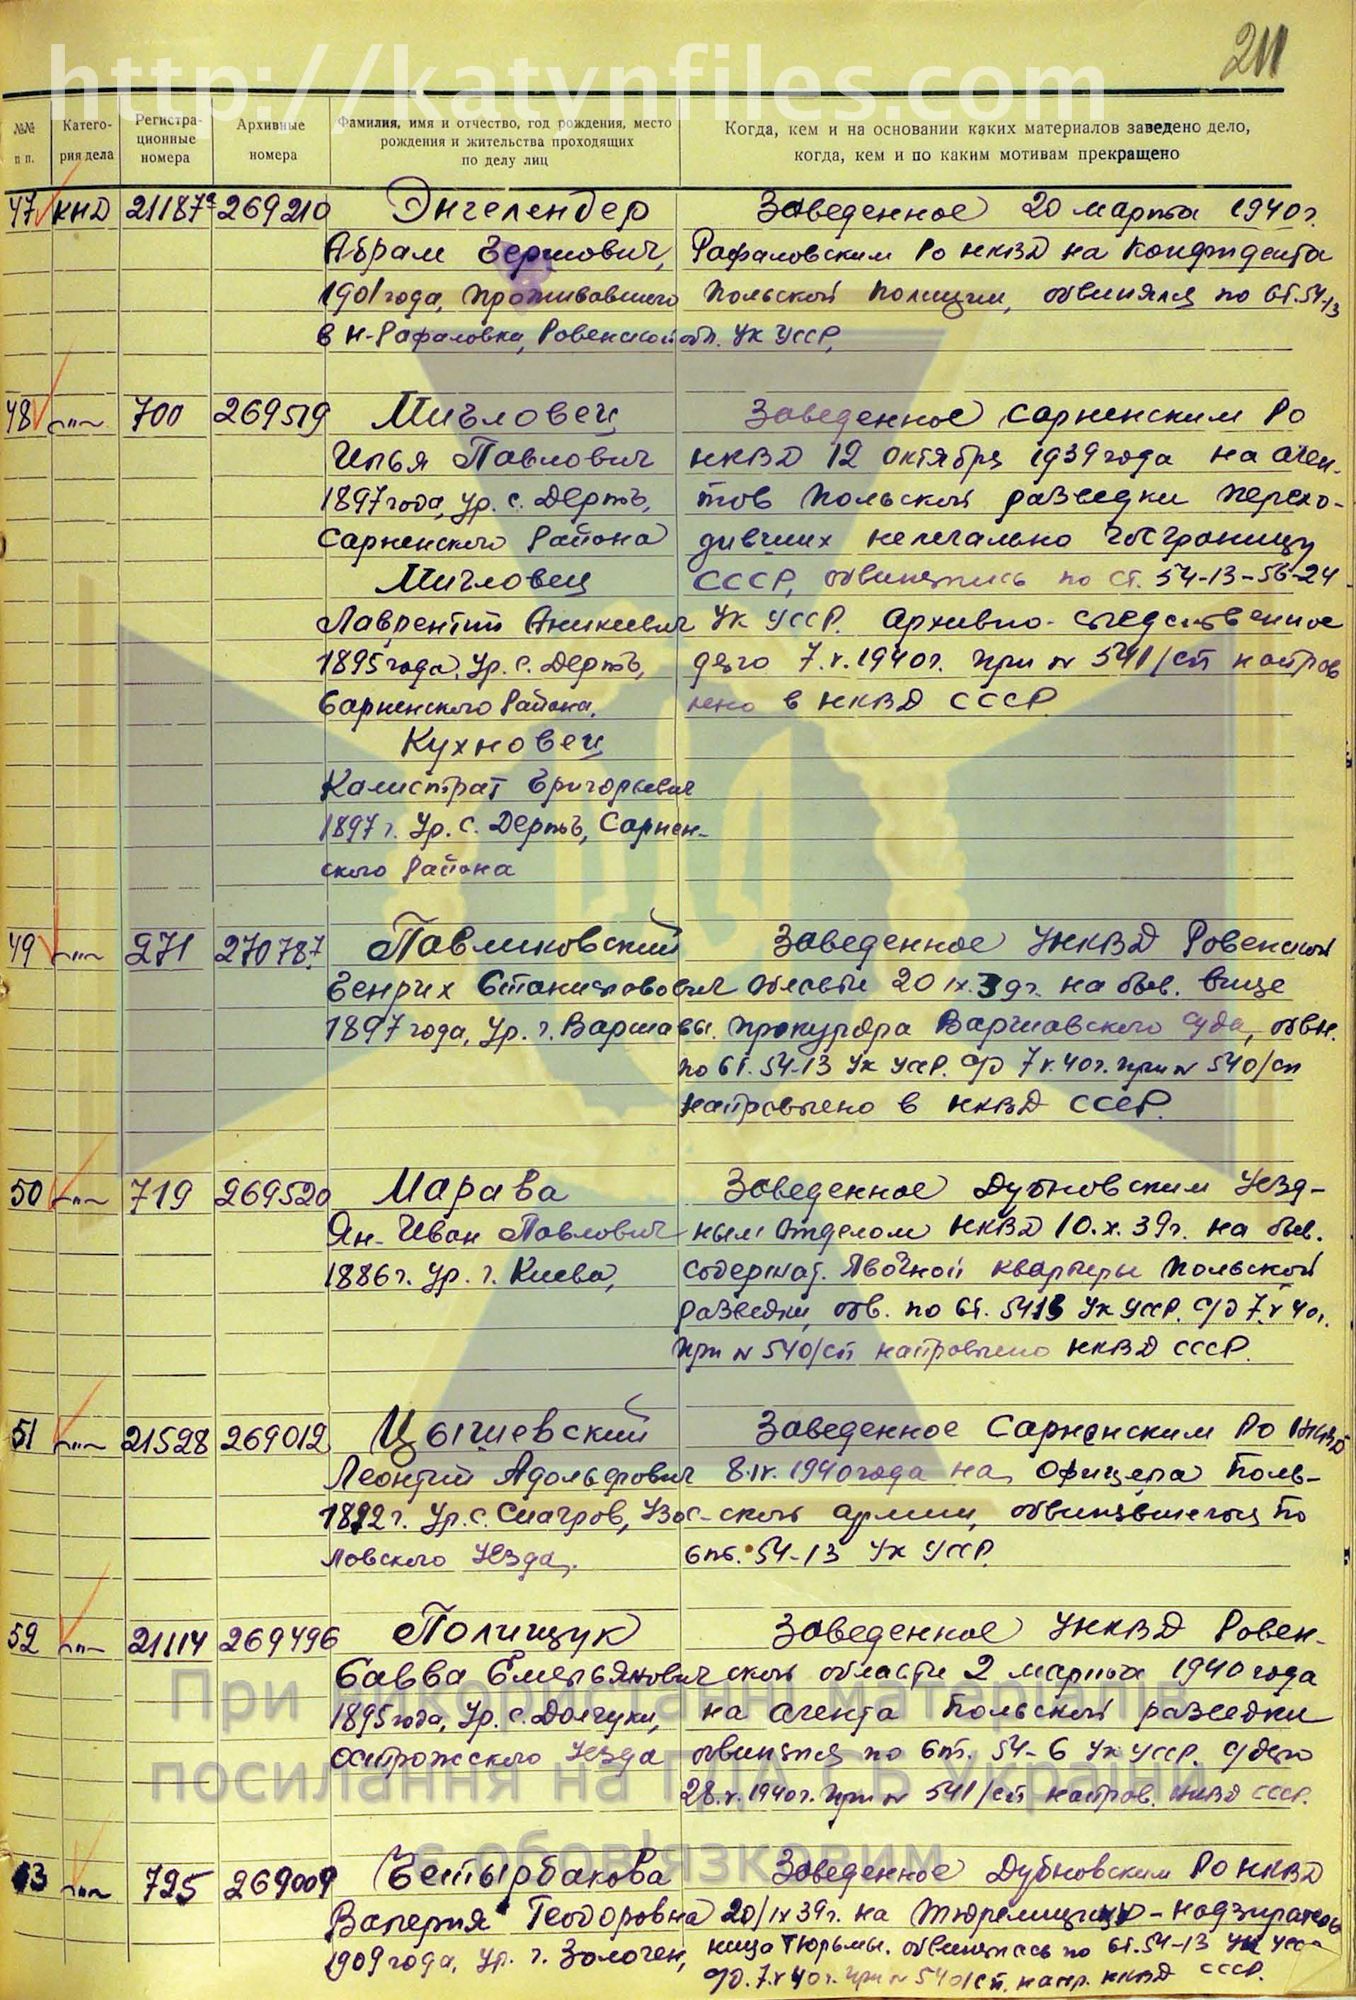 http://katynfiles.com
211
№№ п п.
Катего-
рия дела
Регистра-
ционные
номера
Архивные
номера
Фамилия, имя и отчество, год рождения, место
рождения и жительства проходящих
по делу лиц
Когда, кем и на основании каких материалов заведено дело,
когда, кем и по каким мотивам прекращено
47 КНД 21187 269210 Энгелендер
Абрам
1901 года, проживавшего
в Н-Рафаловка, Ровенской обл.
Заведенное 20 марта 1940г.
Рафаловским Ро НКВД на конфидента
Польской полиции, обвинялся по ст. 54-13
УК УССР,
48 —"— 700 269519 Мигловец
Илья Павлович
1897 года, ур. с. Дерть,
Сарненского района
Мигловец
Лаврентий Аникиевич
1895 года, ур. с. Дерть,
Сарненского района,
Кухновец
Калистрат Григорьевич
1897 г. ур. с. Дерть, Сарнен-
ского района
Заведенное Сарненским Ро
НКВД 12 октября 1939 года на аген-
тов Польской разведки перехо-
дивших нелегально госграницу
СССР, обвинялись по ст. 54-13-56-24
УК УССР. Архивно-следственное
дело 7.V.1940г. при № 541/сп направ
лено в НКВД СССР
49 —"— 271 270787 Павликовский
Генрих Станиславович
1897 года, ур. г. Варшавы.
Заведенное УНКВД Ровенской
области 20 IX.39г. на быв. вице
прокурора Варшавского суда, обвин.
по ст. 54-13 УК УССР. с/д 7.V.40г. при № 540/сп
направлено в НКВД СССР.
50 —"— 719 269520 Марава
Ян-Иван Павлович
1886 г. ур. г. Киева,
Заведенное Дубновским уезд-
ным отделом НКВД 10.X.39г. на быв.
содержат. явочной квартиры Польской
разведки, обв. по ст. 54-13 УК УССР. с/д 7.V 40г.
при № 540/сп направлено НКВД СССР.
51 —"— 21528 269012
Леонтий Адольфович
Заведенное Сарненским Ро НКВД
8.IV.1940 года на офицера Поль-
ской армии, обвинявшегося по
ст. 54-13 УК УССР.
52 —"— 21114 269496 Полищук
Савва Емельянович
1895 года, ур. с. Долчуки,
Острожского уезда
Заведенное УНКВД Ровен-
ской области 2 марта 1940 года
на агента Польской разведки
обвинялся по ст. 54-6 УК УССР. с/дело
28.V.1940г. при № 541/сп направ. НКВД СССР.
53 —"— 725 269009
Валерия Теодоровна
1909 года, ур. г. Золочев,
Заведенное Дубновским Ро НКВД
20/IX 39г. на тюремщицу-надзиратель
ница тюрьмы. обвинялась по ст. 54-13 УК УССР
с/д. 7.V 40г. при № 540/сп. напр. НКВД СССР.
При використанні матеріалів
посилання на ГДА СБ України
є обов'язковим